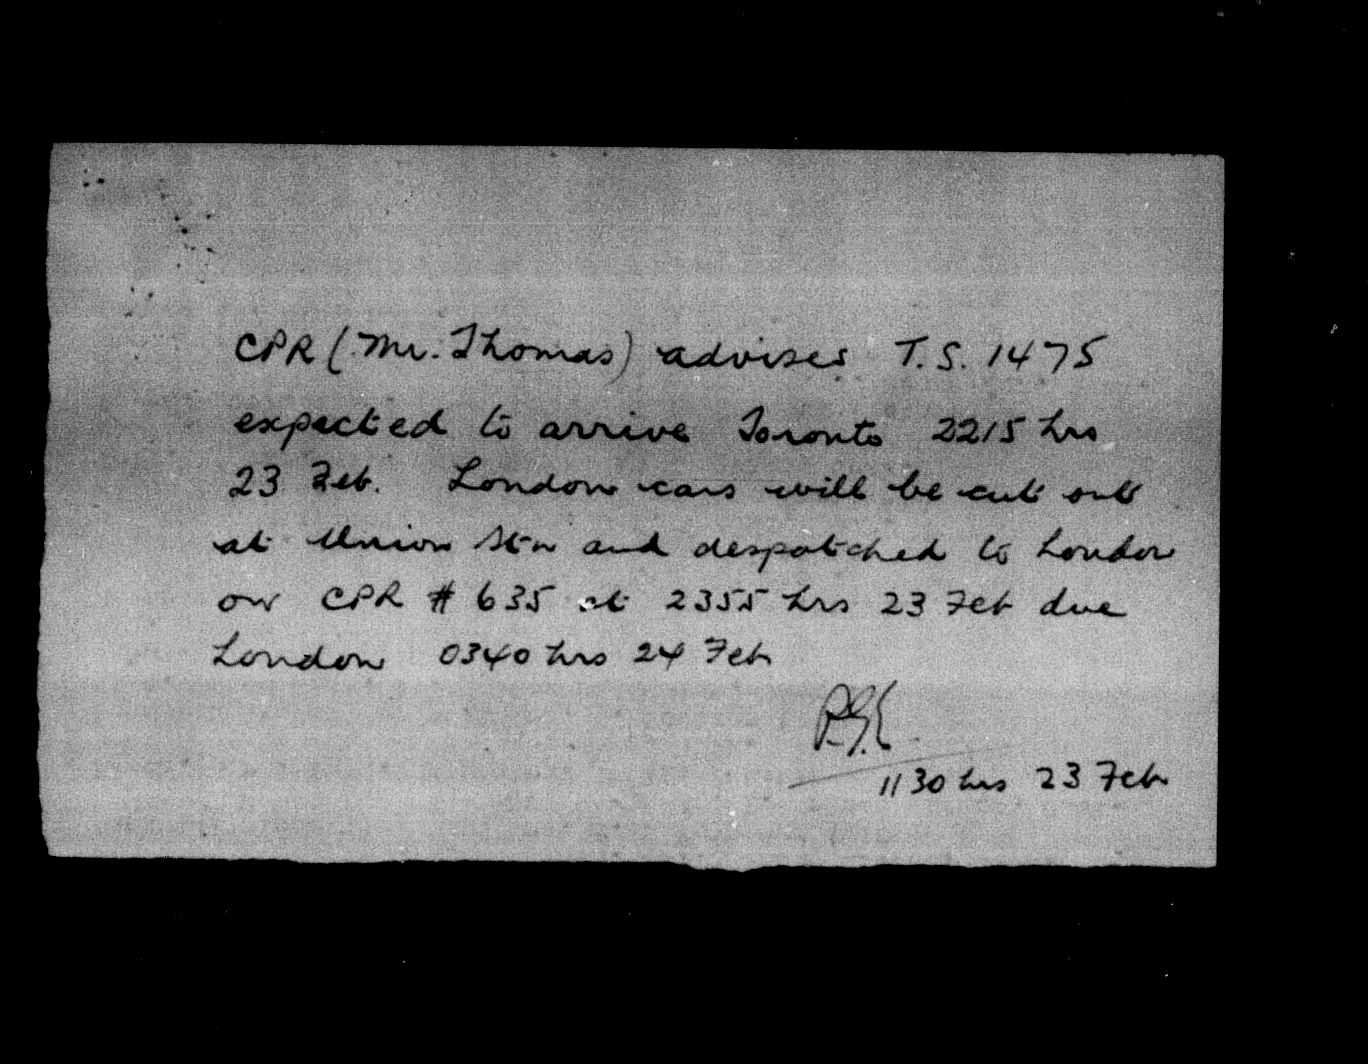 CPR (Mr. Thomas) advises T.S. 1475
expected to arrive Toronto 2215 hrs
23 Feb. London cars will be cut out
at Union Stn and despatched to London
on CPR # 635 at 2355 hrs 23 Feb due
London 0340 hrs 24 Feb
1130 hrs 23 Feb